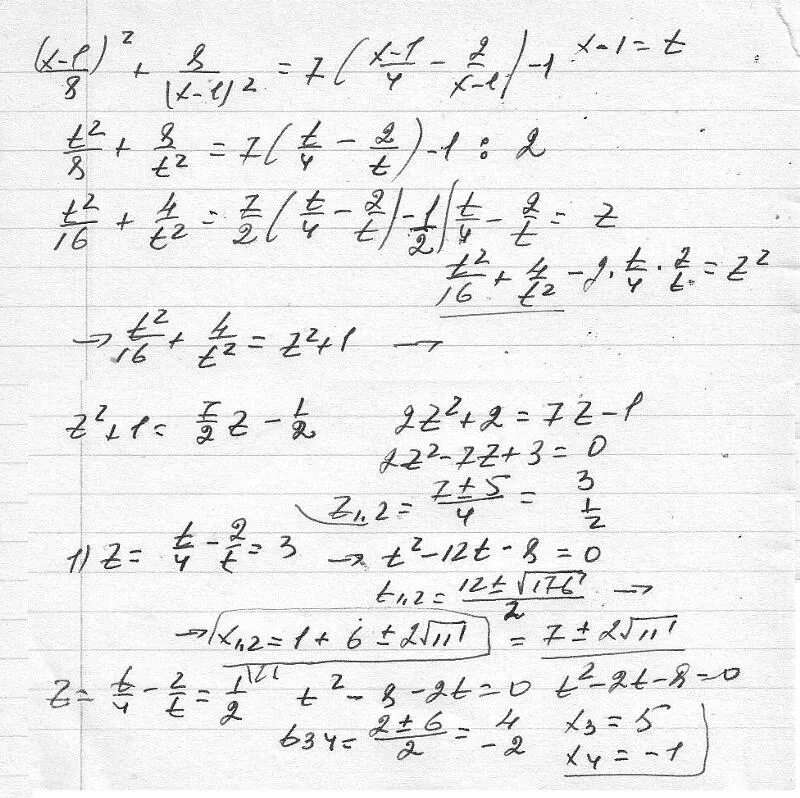 (x-1)²/8 + 8/(x-1)² = 7(x-1/4 - 2/x-1) -1 x-1 = t
t²/8 + 8/t² = 7(t/4 - 2/t) -1 : 2
t²/16 + 4/t² = 7/2(t/4 - 2/t) - 1/2 | t/4 - 2/t = z
t²/16 + 4/t² - 2·t/4·2/t = z²
→ t²/16 + 4/t² = z²+1 →
z²+1 = 7/2 z - 1/2 2z²+2 = 7z-1
2z²-7z+3 = 0
z₁,₂ = 7±5/4 = 3 1/2
1) z = t/4 - 2/t = 3 → t²-12t-8 = 0
t₁,₂ = 12±√176/2 →
→ x₁,₂ = 1+6±2√11 = 7±2√11
z = t/4 - 2/t = 1/2 t²-8-2t=0 t²-2t-8=0
t₃₄ = 2±6/2 = 4 -2 x₃ = 5
x₄ = -1